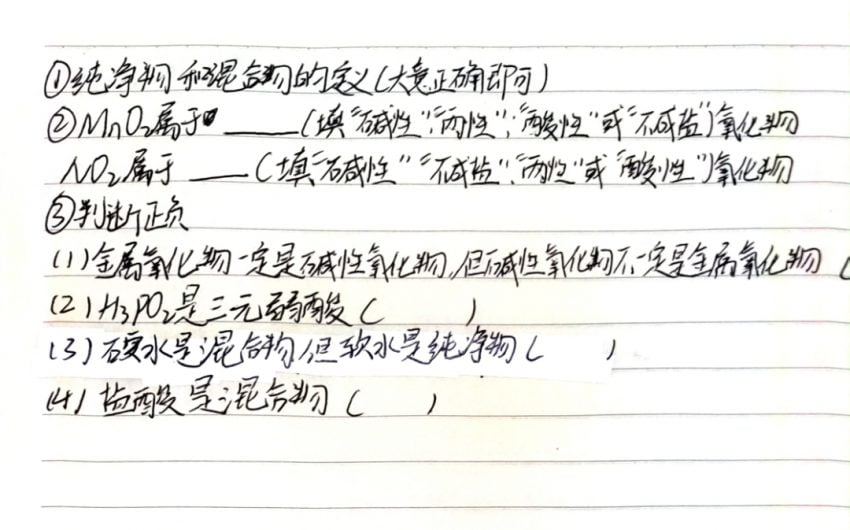 ①纯净物和混合物的定义(大意正确即可)
②MnO2属于 ____(填“碱性”“两性”“酸性”或“不成盐”)氧化物
NO2属于 ____(填“碱性”“不成盐”“两性”或“酸性”)氧化物
③判断正负
(1)金属氧化物一定是碱性氧化物,但碱性氧化物不一定是金属氧化物(
(2)H3PO2是三元弱酸( )
(3)硬水是混合物,但软水是纯净物( )
(4)盐酸是混合物( )